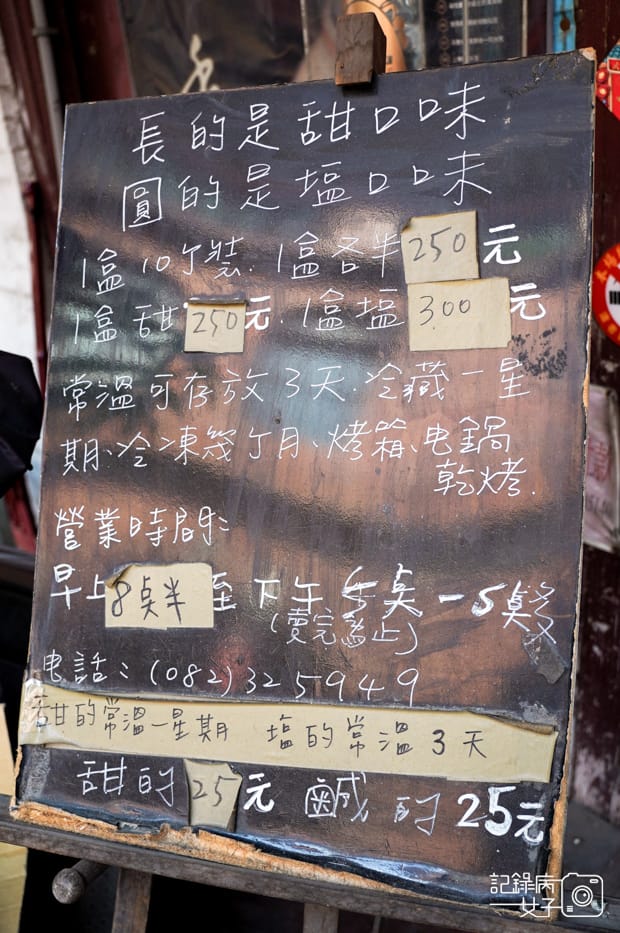 長的是甜口口味
圓的是塩口口味
1盒10个裝.1盒各半250元
1盒甜250元.1盒塩300元
常溫可存放3天.冷藏一星
期、冷凍幾个月、烤箱、电鍋
乾烤.
營業時間:
早上8点半至下午5点-5點
(賣完為止)
电話:(082)325949
甜的常溫一星期 塩的常溫3天
甜的25元 鹹的25元
記錄病
女子